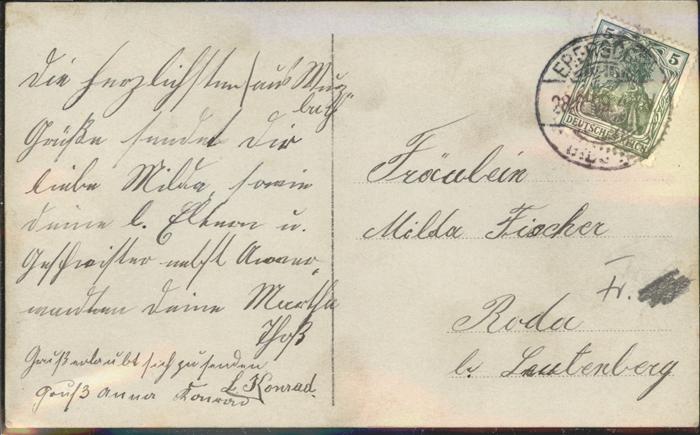 Die herzlichsten (aus Wurz
bach)
Grüße sendet Dir
liebe Milda, sowie
deine l. Eltern u.
Geschwister nebst Anver-
wandten Deine Martha
Thoß
Gruß erlaubt sich zu senden
L. Konrad.
Gruß Anna Konrad
5 5
DEUTSCHES REICH
Fräulein
Milda Fischer
Fr.
Roda
b. Leutenberg